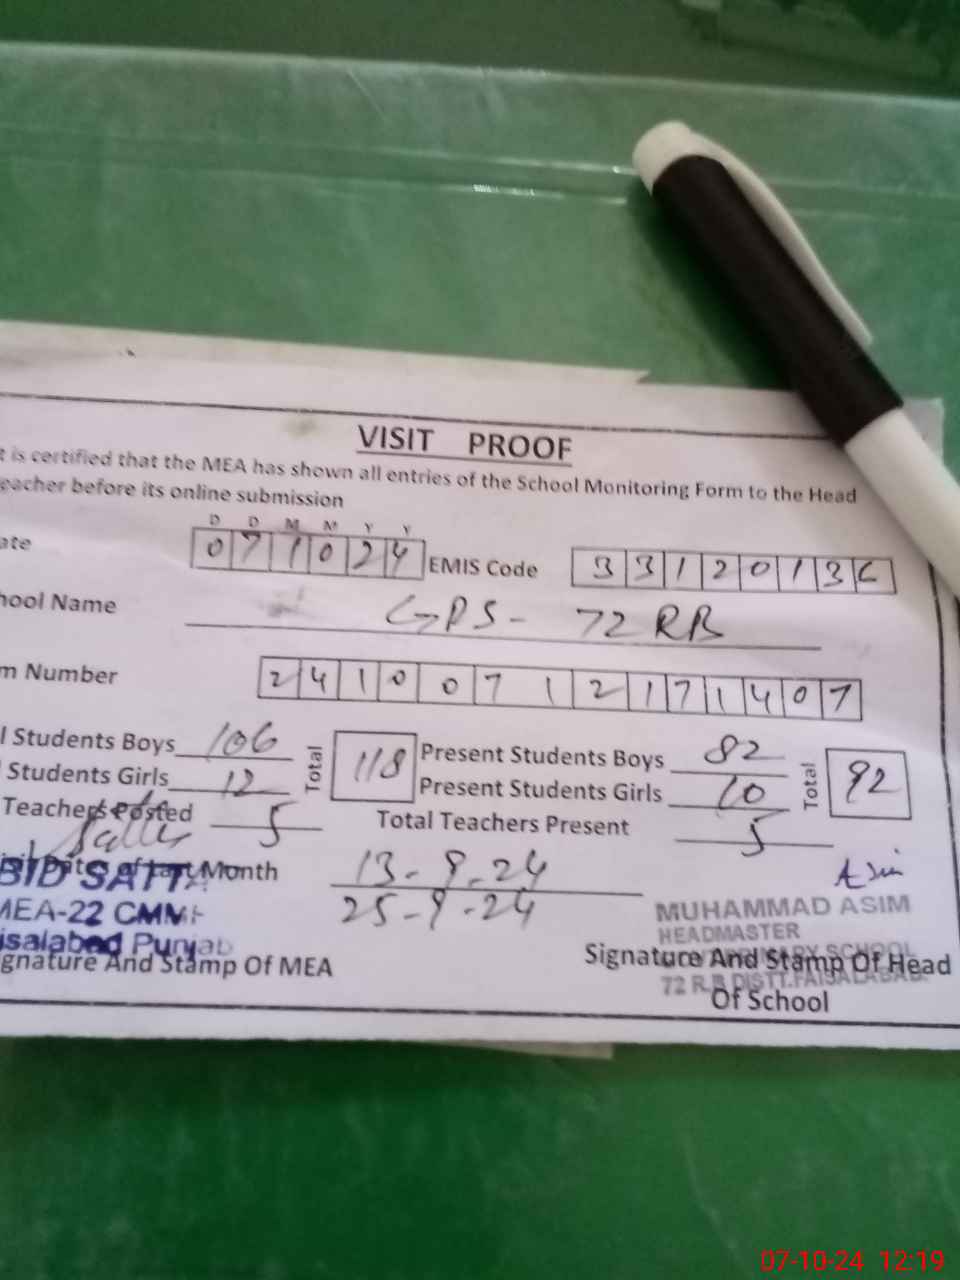 VISIT PROOF
t is certified that the MEA has shown all entries of the School Monitoring Form to the Head
eacher before its online submission
D D M M Y Y
ate 071024 EMIS Code 3312013
hool Name GPS- 72 RB
m Number 24100712171407
l Students Boys 106 Total 118 Present Students Boys 82 Total 92
Students Girls 12 Present Students Girls 10
Teachers Posted 5 Total Teachers Present 5
of Last Month 13-9-24
25-9-24
Asim
BID SATTA
MEA-22 CMMF
isalabad Punjab
gnature And Stamp Of MEA
MUHAMMAD ASIM
HEADMASTER
PRIMARY SCHOOL
72 R.B DISTT.FAISALABAD.
Signature And Stamp Of Head
Of School
07-10-24 12:19